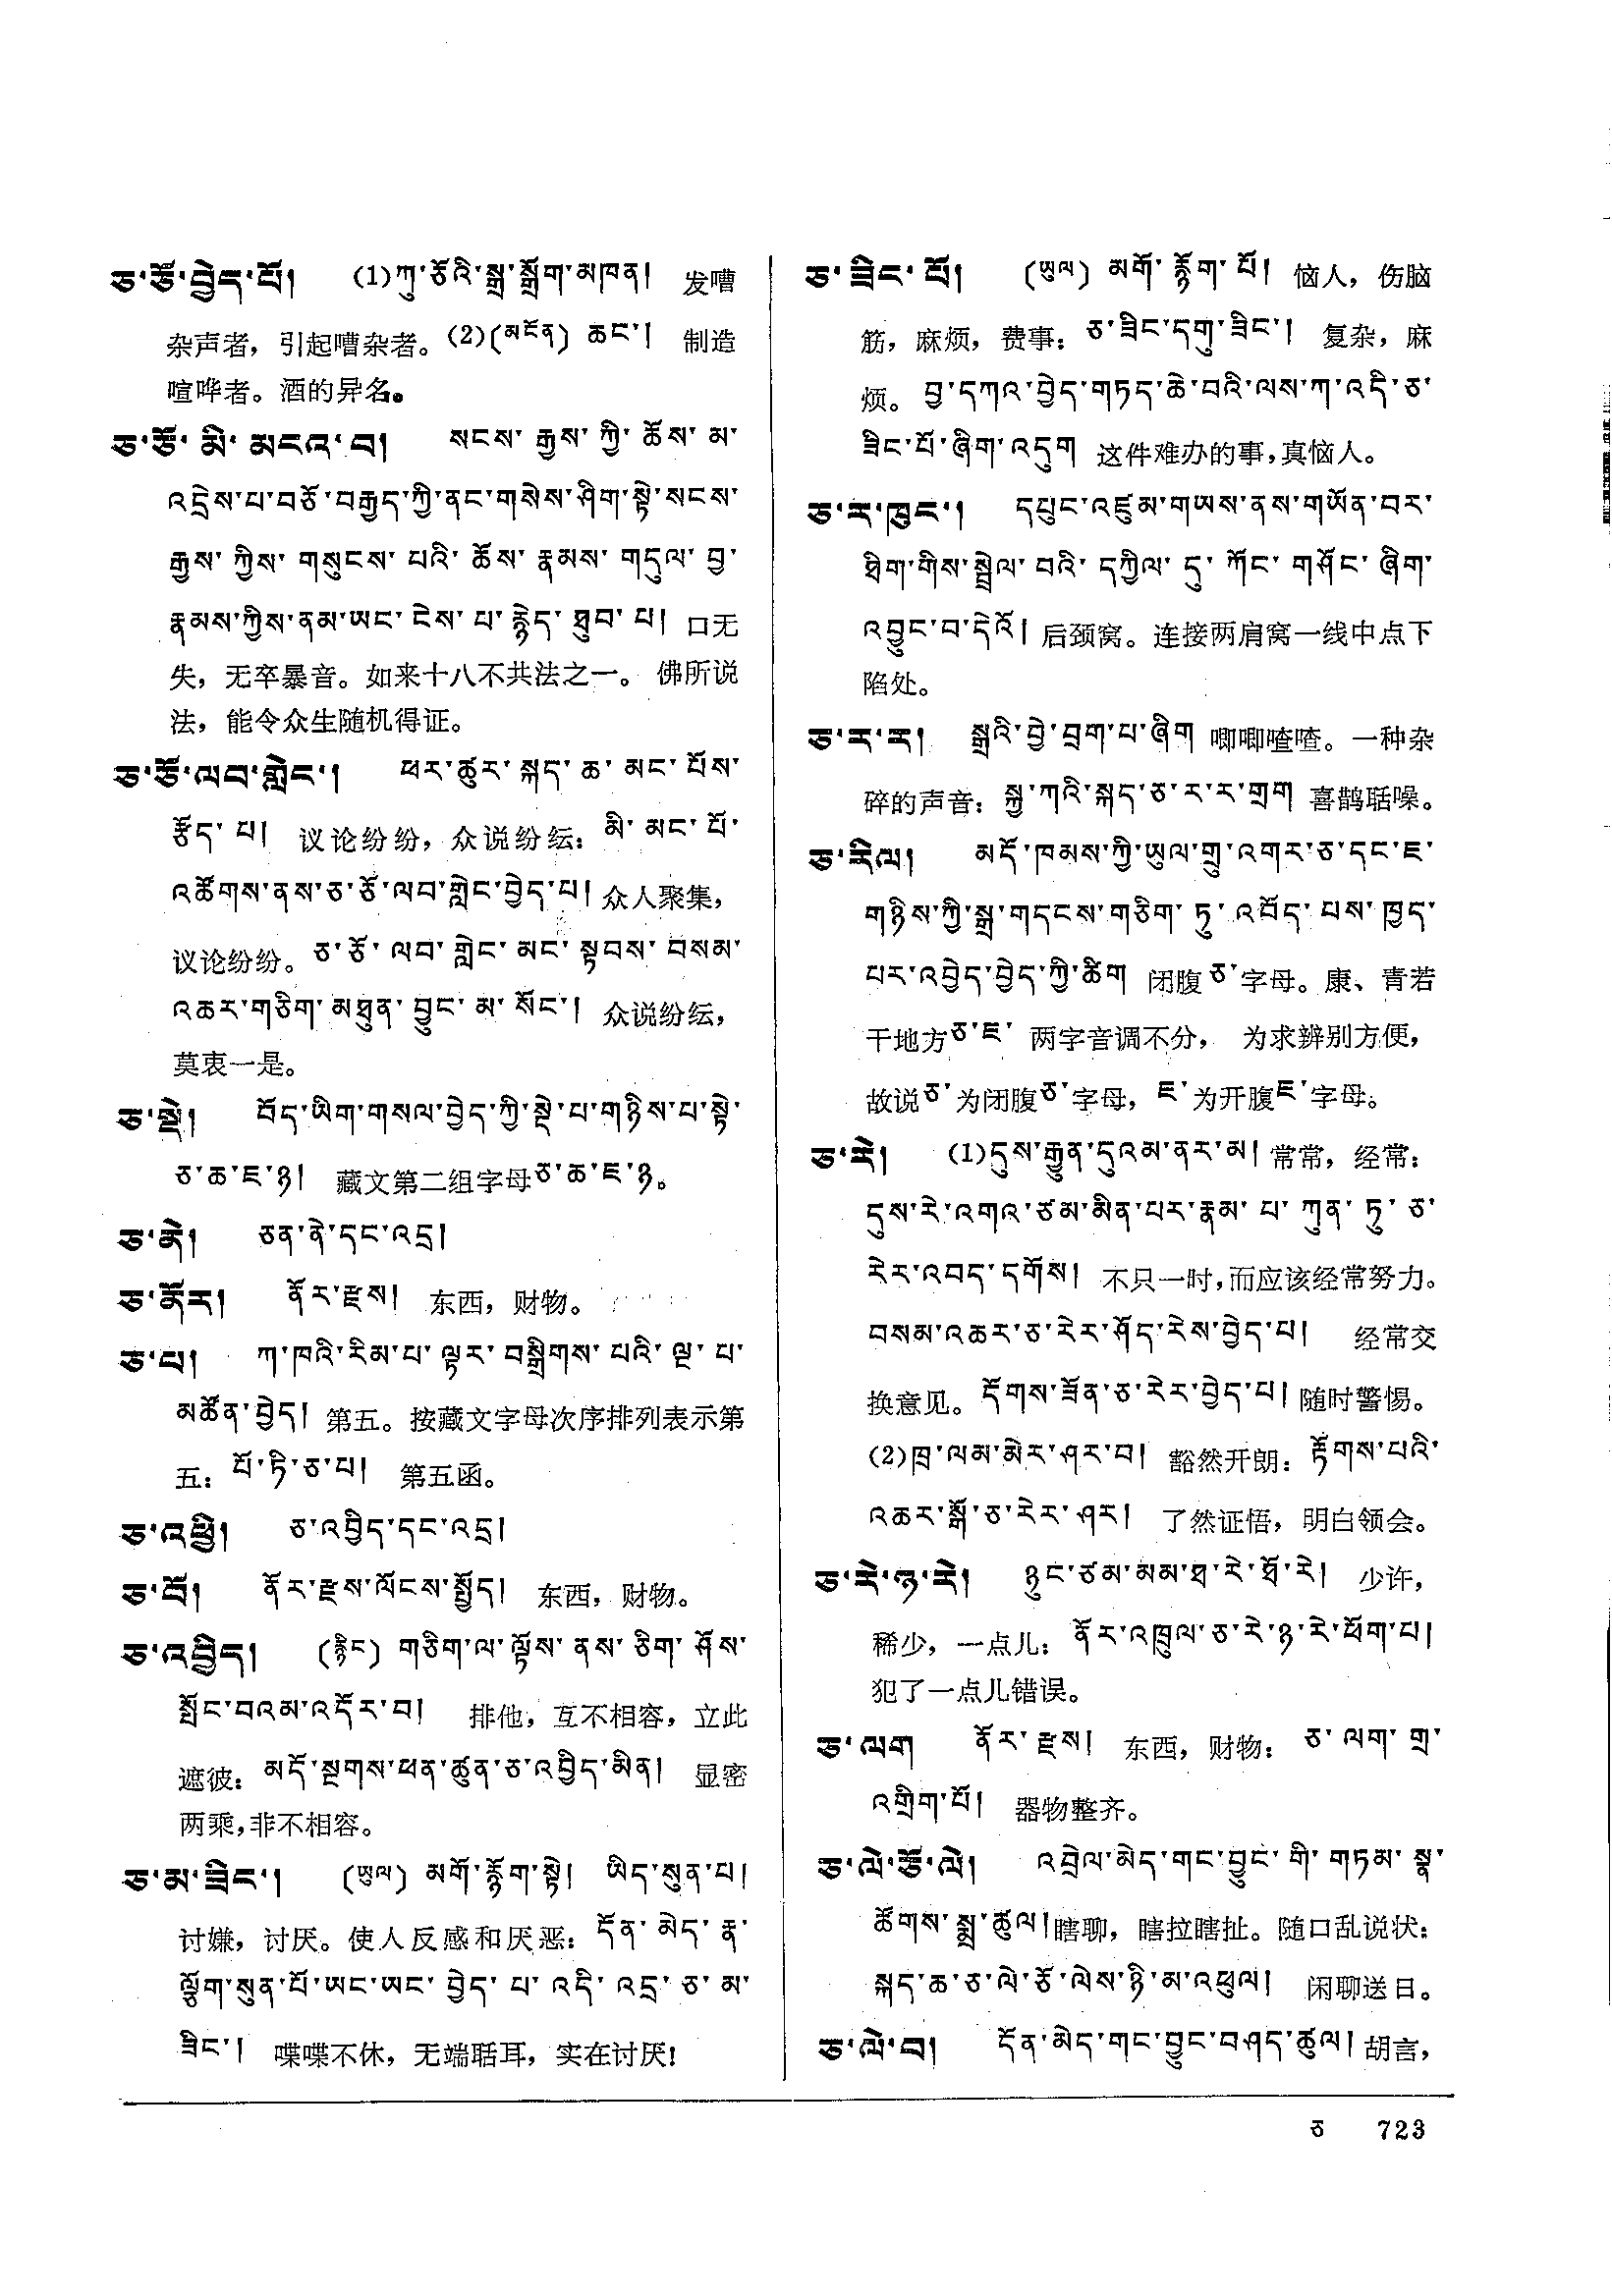 ཅ་ཅོ་བྱེད་པོ། (1)ཀུ་ཅོའི་སྒྲ་སྒྲོག་མཁན། 发嘈
杂声者，引起嘈杂者。(2)(མངོན) ཆང་། 制造
喧哗者。酒的异名。
ཅ་ཅོ་མི་མངའ་བ། སངས་རྒྱས་ཀྱི་ཆོས་མ་
འདྲེས་པ་བཅོ་བརྒྱད་ཀྱི་ནང་གསེས་ཤིག་སྟེ་སངས་
རྒྱས་ཀྱིས་གསུངས་པའི་ཆོས་རྣམས་གདུལ་བྱ་
རྣམས་ཀྱིས་ནམ་ཡང་ངེས་པ་རྙེད་ཐུབ་པ། 口无
失，无卒暴音。如来十八不共法之一。佛所说
法，能令众生随机得证。
ཅ་ཅོ་ལབ་གླེང་། ཕར་ཚུར་སྐད་ཆ་མང་པོས་
རྩོད་པ། 议论纷纷，众说纷纭：མི་མང་པོ་
འཚོགས་ནས་ཅ་ཅོ་ལབ་གླེང་བྱེད་པ། 众人聚集，
议论纷纷。ཅ་ཅོ་ལབ་གླེང་མང་སྟབས་བསམ་
འཆར་གཅིག་མཐུན་བྱུང་མ་སོང་། 众说纷纭，
莫衷一是。
ཅ་སྡེ། བོད་ཡིག་གསལ་བྱེད་ཀྱི་སྡེ་པ་གཉིས་པ་སྟེ་
ཅ་ཆ་ཇ་ཉ། 藏文第二组字母ཅ་ཆ་ཇ་ཉ。
ཅ་ནེ། ཅན་ནེ་དང་འདྲ།
ཅ་ནོར། ནོར་རྫས། 东西，财物。
ཅ་པ། ཀ་ཁའི་རིམ་པ་ལྟར་བསྒྲིགས་པའི་ལྔ་པ་
མཚོན་བྱེད། 第五。按藏文字母次序排列表示第
五：པོ་ཏི་ཅ་པ། 第五函。
ཅ་འཕྱི། ཅ་འབྱིད་དང་འདྲ།
ཅ་པོ། ནོར་རྫས་ལོངས་སྤྱོད། 东西，财物。
ཅ་འབྱིད། (རྙིང) གཅིག་ལ་ལྟོས་ནས་ཅིག་ཤོས་
སྤོང་བའམ་འདོར་བ། 排他，互不相容，立此
遮彼：མདོ་སྔགས་ཕན་ཚུན་ཅ་འབྱིད་མིན། 显密
两乘，非不相容。
ཅ་མ་ཟིང་། (ཡུལ) མགོ་རྙོག་སྟེ། ཡིད་སུན་པ།
讨嫌，讨厌。使人反感和厌恶：དོན་མེད་རྣ་
ལྕོག་སུན་པོ་ཡང་ཡང་བྱེད་པ་འདི་འདྲ་ཅ་མ་
ཟིང་། 喋喋不休，无端聒耳，实在讨厌！
ཅ་ཟིང་པོ། (ཡུལ) མགོ་རྙོག་པོ། 恼人，伤脑
筋，麻烦，费事：ཅ་ཟིང་དགུ་ཟིང་། 复杂，麻
烦。བྱ་དཀའ་བྱེད་གཏད་ཆེ་བའི་ལས་ཀ་འདི་ཅ་
ཟིང་པོ་ཞིག་འདུག 这件难办的事，真恼人。
ཅ་ར་ཁུང་། དཔུང་འཛུམ་གཡས་ནས་གཡོན་བར་
ཐིག་གིས་སྦྲེལ་བའི་དཀྱིལ་དུ་ཀོང་གཤོང་ཞིག་
འབྱུང་བ་དེའོ། 后颈窝。连接两肩窝一线中点下
陷处。
ཅ་ར་ར། སྒྲའི་བྱེ་བྲག་པ་ཞིག 唧唧喳喳。一种杂
碎的声音：སྐྱ་ཀའི་སྐད་ཅ་ར་ར་གྲག 喜鹊聒噪。
ཅ་རིལ། མདོ་ཁམས་ཀྱི་ཡུལ་གྲུ་འགར་ཅ་དང་ཇ་
གཉིས་ཀྱི་སྒྲ་གདངས་གཅིག་ཏུ་འབོད་པས་ཁྱད་
པར་འབྱེད་བྱེད་ཀྱི་ཚིག 闭腹ཅ་字母。康、青若
干地方ཅ་ཇ་ 两字音调不分，为求辨别方便，
故说ཅ་为闭腹ཅ་字母，ཇ་为开腹ཇ་字母。
ཅ་རེ། (1)དུས་རྒྱུན་དུའམ་ནར་མ། 常常，经常：
དུས་རེ་འགའ་ཙམ་མིན་པར་རྣམ་པ་ཀུན་ཏུ་ཅ་
རེར་འབད་དགོས། 不只一时，而应该经常努力。
བསམ་འཆར་ཅ་རེར་ཤོད་རེས་བྱེད་པ། 经常交
换意见。དོགས་ཟོན་ཅ་རེར་བྱེད་པ། 随时警惕。
(2)ཁྲ་ལམ་མེར་ཤར་བ། 豁然开朗：རྟོགས་པའི་
འཆར་སྒོ་ཅ་རེར་ཤར། 了然证悟，明白领会。
ཅ་རེ་ཉ་རེ། ཉུང་ཙམ་མམ་ཐ་རེ་ཐོ་རེ། 少许，
稀少，一点儿：ནོར་འཁྲུལ་ཅ་རེ་ཉ་རེ་ཕོག་པ།
犯了一点儿错误。
ཅ་ལག ནོར་རྫས། 东西，财物：ཅ་ལག་གྲ་
འགྲིག་པོ། 器物整齐。
ཅ་ལེ་ཅོ་ལེ། འབྲེལ་མེད་གང་བྱུང་གི་གཏམ་སྣ་
ཚོགས་སྨྲ་ཚུལ། 瞎聊，瞎拉瞎扯。随口乱说状：
སྐད་ཆ་ཅ་ལེ་ཅོ་ལེས་ཉི་མ་འཕུལ། 闲聊送日。
ཅ་ལེ་བ། དོན་མེད་གང་བྱུང་བཤད་ཚུལ། 胡言，
ཅ 723